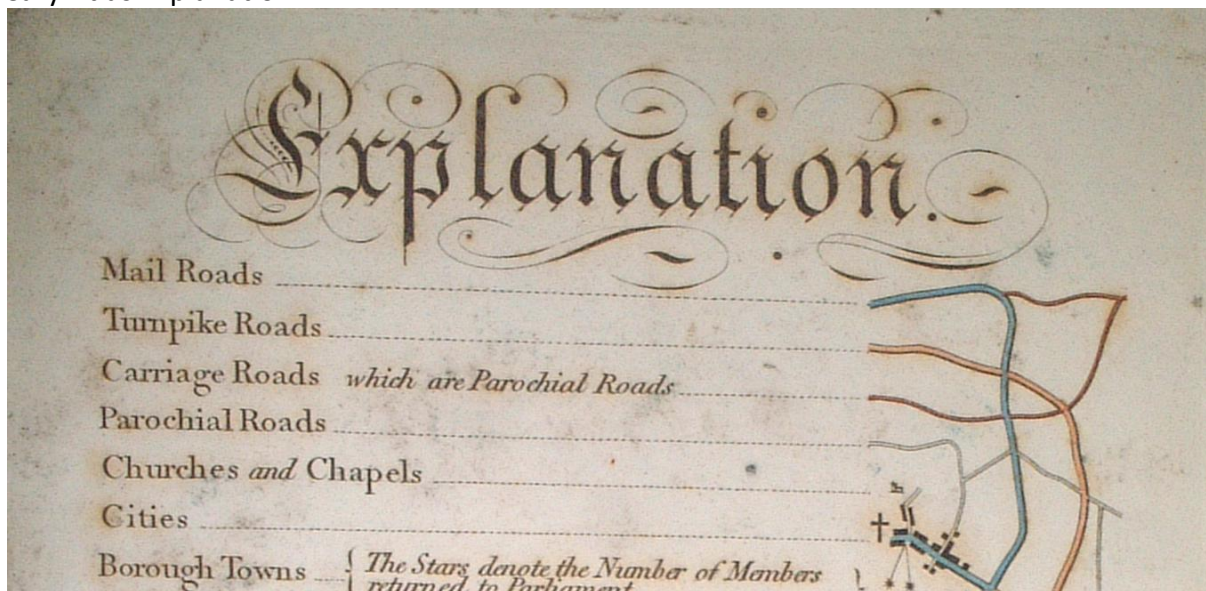 Explanation.
Mail Roads
Turnpike Roads
Carriage Roads which are Parochial Roads
Parochial Roads
Churches and Chapels
Cities
Borough Towns { The Stars denote the Number of Members }
returned to Parliament